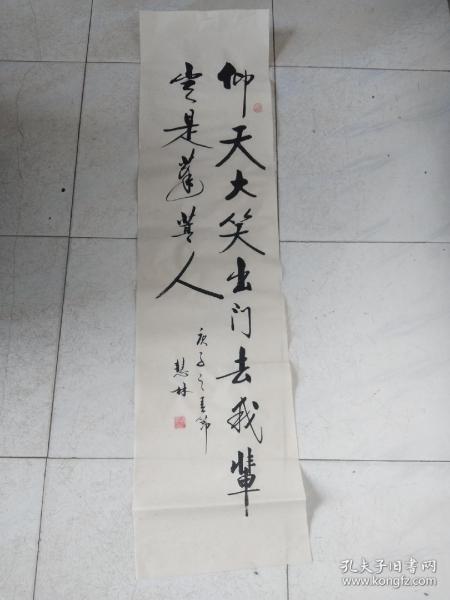 仰天大笑出门去我辈
岂是蓬蒿人
庚子之春节
慧林
孔夫子旧书网
www.kongfz.com